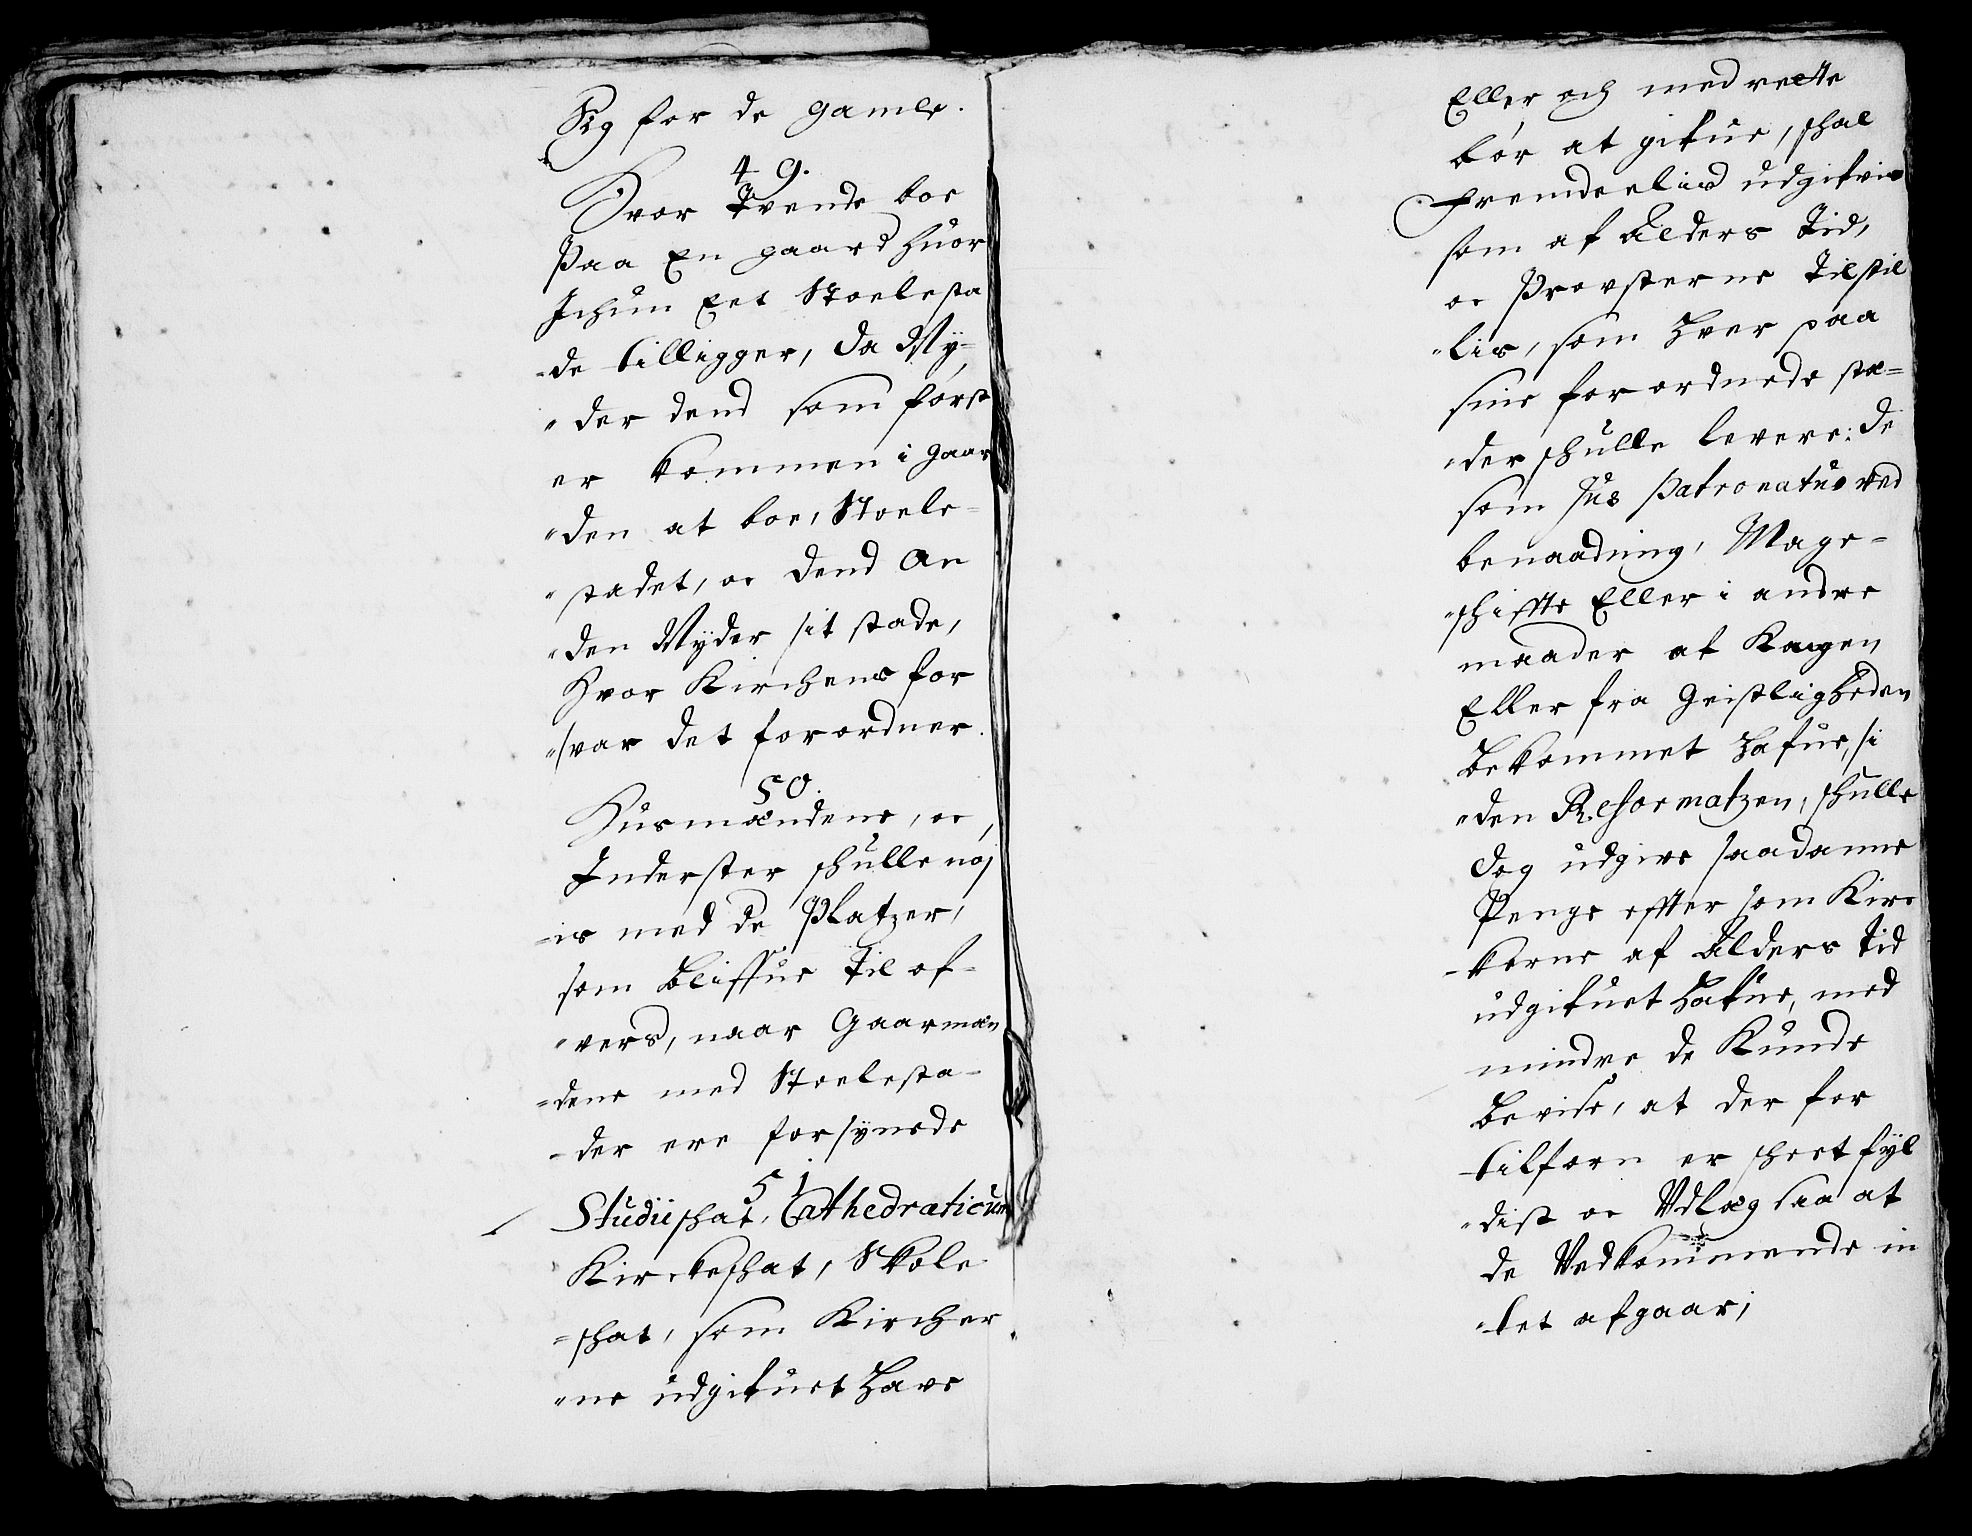 Sig for de gamle.
49.
Hvor Tvende boe
Paa En gaard huor
Ichun Eet Stoelesta
-de tilligger, da Ny-
"der dend som først
er kommen i gaar
"den at boe, Stoele-
"stadet, oc dend An
"den Nyder sit stade,
Hvor Kirchens for
"svar det forordner.
50.
Husmændene, oc
Inderster schulle nøj
-is med de Platzer,
som bliffue til of-
"vers, naar Gaarmæn
-dene med Stoelesta-
-der ere forsynede
51
Studii schat, Cathedraticum
Kirckeschat, Skole
-schat, som Kircher
"ne udgifuet have
Eller och med rette
bør at gifue, schal
Fremdeelis udgifvis
som af Alders tid,
oc Provsterne tilstil
"lis, som hver paa
sine forordnede stæ-
"der schulle levere: De
som Jus Patronatus ved
benaadning, Mage-
"schiffte Eller i andre
maader af Kongen
Eller fra Geistligheden
bekommet hafue, si
"den Reformatzen, schulle
dog udgive saadanne
Penge effter som Kirc
-kerne af Alders tid
udgifuet hafue, med
mindre de Kunde
bevise, at der for
-tilforn er scheet fyl
"dist oc Udlæg saa at
de Vedkommende in
"tet afgaar;